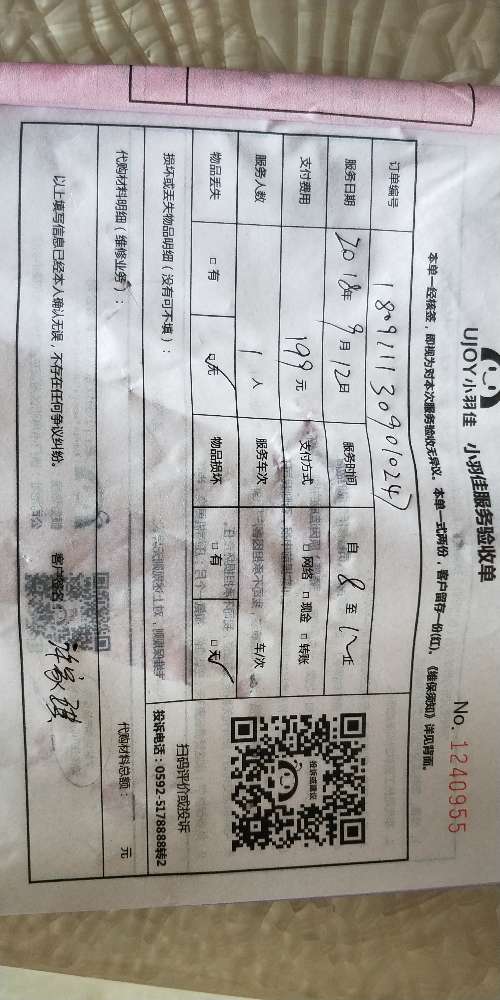 UJOY小羽佳 小羽佳服务验收单
No. 1240955
本单一经核签，即视为对本次服务验收无异议。本单一式两份，客户留存一份(红)。《维保须知》详见背面。
订单编号
服务日期 2018年9月12日 服务时间 自 8 至
支付费用 199元 支付方式 □网络 □现金 □转账
服务人数 1人 服务车次 车次
物品丢失 □有 □无 物品损坏 □有 □无
损坏或丢失物品明细（没有可不填）：
投诉或建议
扫码评价或投诉
投诉电话：0592-5178888转2
代购材料明细（维修业务）： 代购材料总额： 元
以上填写信息已经本人确认无误，不存在任何争议纠纷。 客户签名：